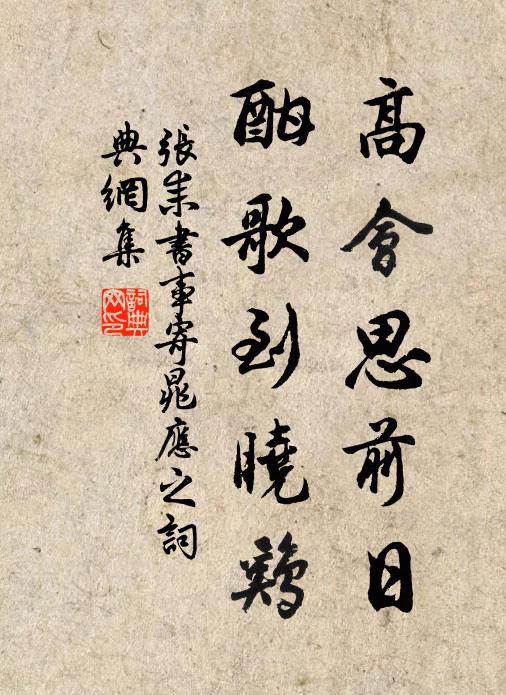 高會思前日
酣歌到曉鷄
張耒書事寄晁應之詞
典網集
詞典
网印